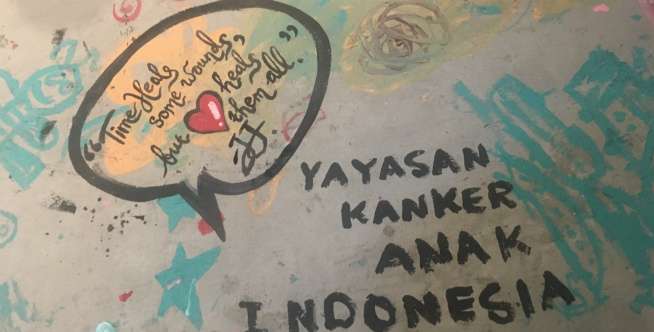 "Time Heals
some wounds,
but ❤ heals
them all."
YAYASAN
KANKER
ANAK
INDONESIA